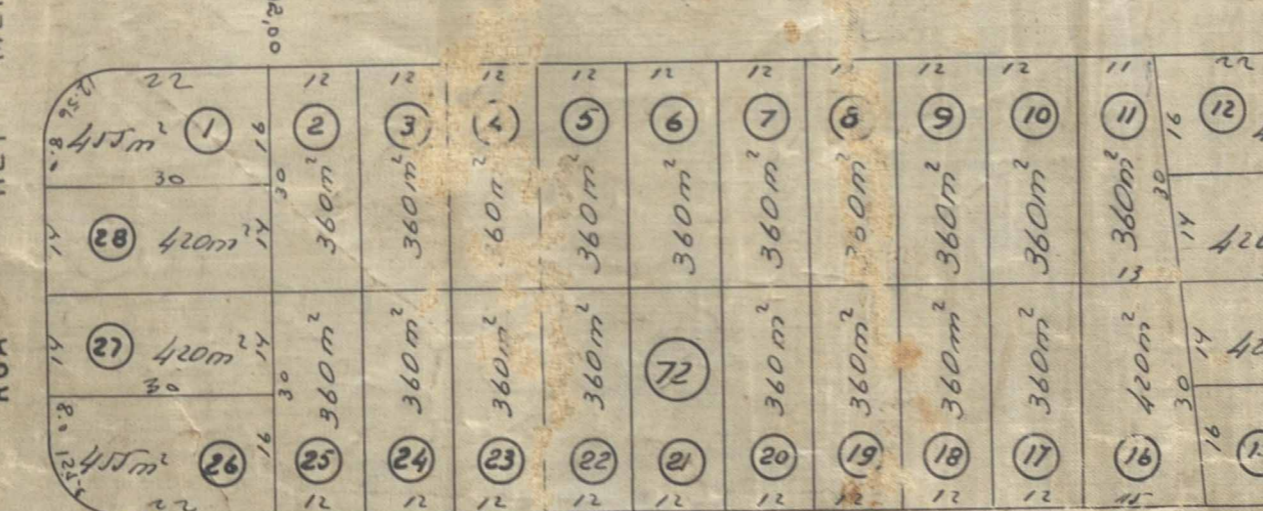 2,00
22 12 12 12 12 12 12 12 12 12 11 22
12.56 455m² 1 16 2 3 4 5 6 7 8 9 10 11 16 12
8.0
30 30 360m² 360m² 360m² 360m² 360m² 360m² 360m² 360m² 360m² 360m² 30
14 28 420m² 14 14
13
14 27 420m² 14 360m² 360m² 360m² 360m² 72 360m² 360m² 360m² 360m² 420m² 14
30 30 30
8.0
455m² 26 16 25 24 23 22 21 20 19 18 17 16 16
22 12 12 12 12 12 12 12 12 12 15